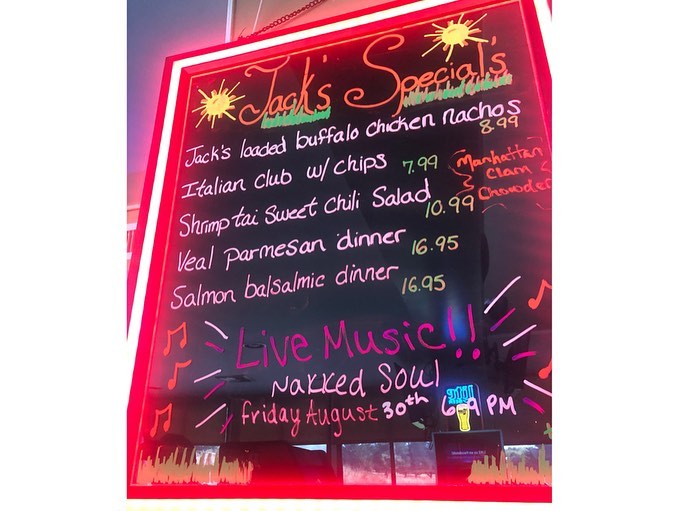 Jack's Special's
Jack's loaded buffalo chicken nachos 8.99
Italian club w/ chips 7.99
Manhattan
Clam
Chowder
Shrimp tai Sweet Chili Salad 10.99
Veal parmesan dinner 16.95
Salmon balsalmic dinner 16.95
Live Music!!
Nakked Soul
Friday August 30th 6-9 PM